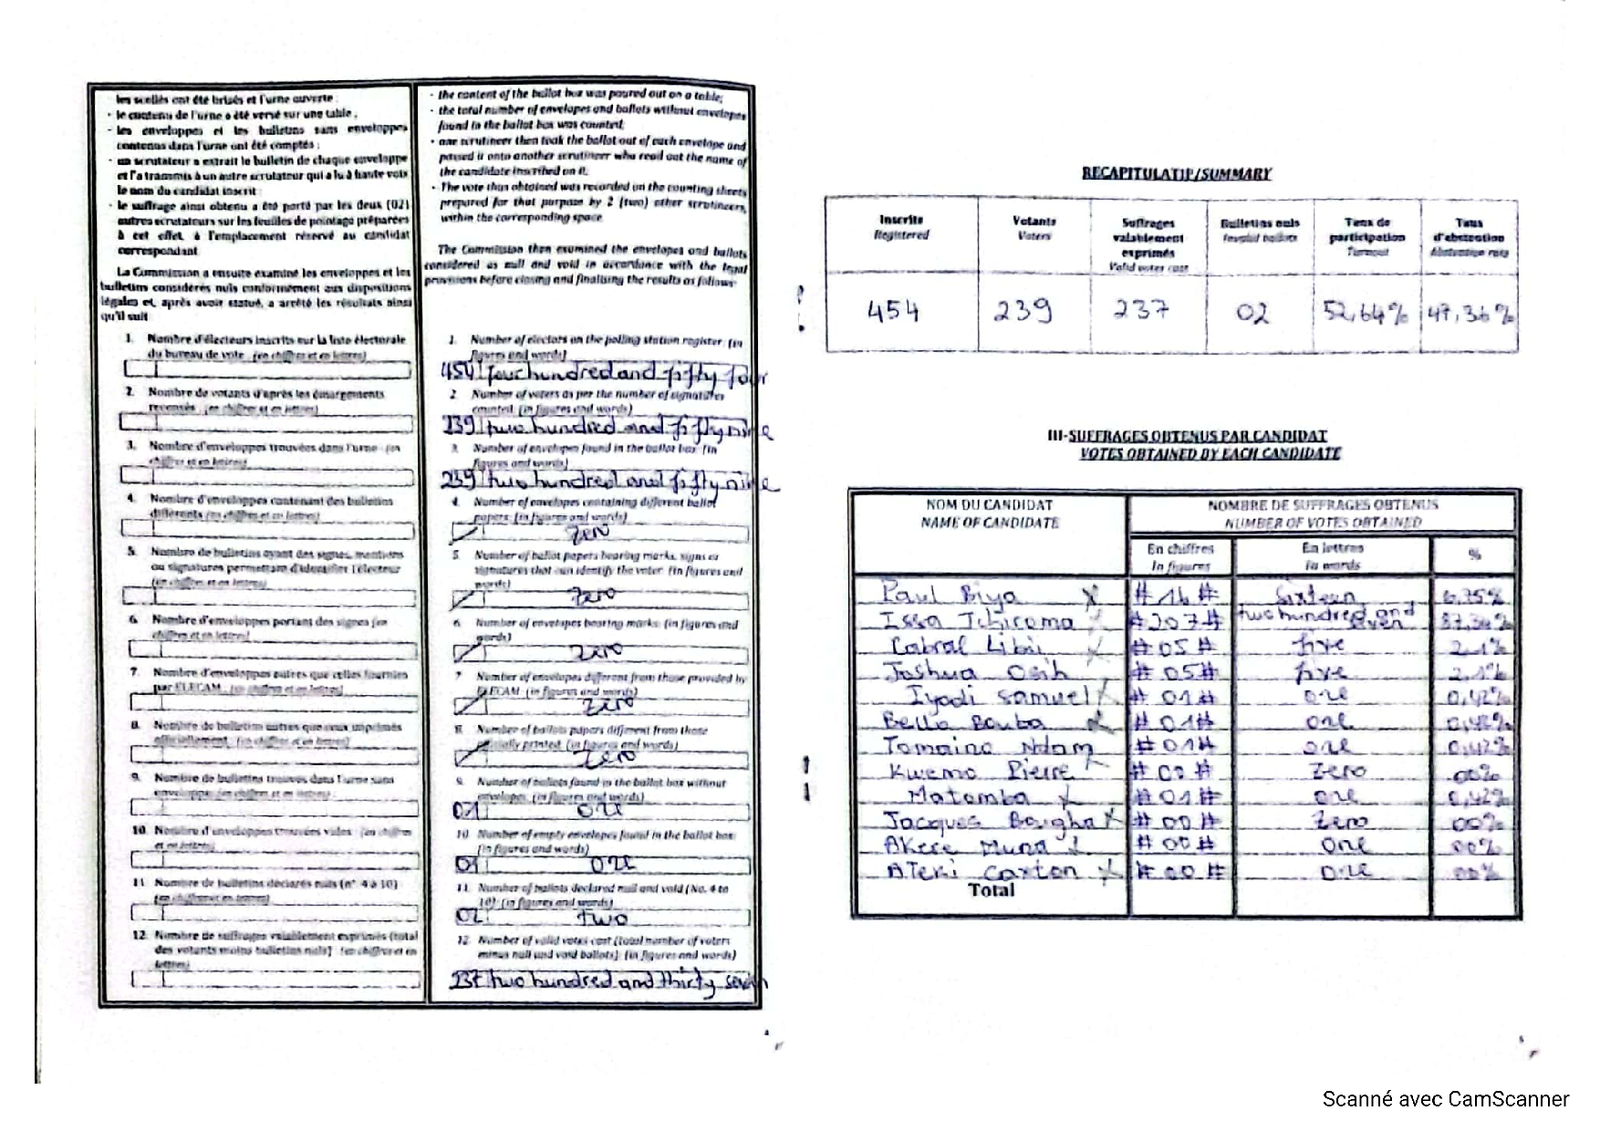 les scellés ont été brisés et l'urne ouverte ;
- le contenu de l'urne a été versé sur une table ;
- les enveloppes et les bulletins sans enveloppes
contenus dans l'urne ont été comptés ;
- un scrutateur a extrait le bulletin de chaque enveloppe
et l'a transmis à un autre scrutateur qui a lu à haute voix
le nom du candidat inscrit
- le suffrage ainsi obtenu a été porté par les deux (02)
autres scrutateurs sur les feuilles de pointage préparées
à cet effet, à l'emplacement réservé au candidat
correspondant
La Commission a ensuite examiné les enveloppes et les
bulletins considérés nuls conformément aux dispositions
légales et, après avoir statué, a arrêté les résultats ainsi
qu'il suit
1. Nombre d'électeurs inscrits sur la liste électorale
du bureau de vote (en chiffres et en lettres)
2. Nombre de votants d'après les émargements
recensés (en chiffres et en lettres)
3. Nombre d'enveloppes trouvées dans l'urne (en
chiffres et en lettres)
4. Nombre d'enveloppes contenant des bulletins
différents (en chiffres et en lettres)
5. Nombre de bulletins ayant des signes, mentions
ou signatures permettant d'identifier l'électeur
(en chiffres et en lettres)
6. Nombre d'enveloppes portant des signes (en
chiffres et en lettres)
7. Nombre d'enveloppes autres que celles fournies
par ELECAM (en chiffres et en lettres)
8. Nombre de bulletins autres que ceux imprimés
officiellement (en chiffres et en lettres)
9. Nombre de bulletins trouvés dans l'urne sans
enveloppe (en chiffres et en lettres)
10. Nombre d'enveloppes trouvées vides (en chiffres
et en lettres)
11. Nombre de bulletins déclarés nuls (n° 4 à 10)
(en chiffres et en lettres)
12. Nombre de suffrages valablement exprimés (total
des votants moins bulletins nuls) (en chiffres et en
lettres)
- the content of the ballot box was poured out on a table;
- the total number of envelopes and ballots without envelopes
found in the ballot box was counted;
- one scrutineer then took the ballot out of each envelope and
passed it onto another scrutineer who read out the name of
the candidate inscribed on it;
- The vote thus obtained was recorded on the counting sheets
prepared for that purpose by 2 (two) other scrutineers,
within the corresponding space
The Commission then examined the envelopes and ballots
considered as null and void in accordance with the legal
provisions before closing and finalising the results as follows:
1. Number of electors on the polling station register: (in
figures and words)
454 four hundred and fifty four
2. Number of voters as per the number of signatures
counted: (in figures and words)
239 two hundred and fifty nine
3. Number of envelopes found in the ballot box: (in
figures and words)
239 two hundred and fifty nine
4. Number of envelopes containing different ballot
papers: (in figures and words)
zero
5. Number of ballot papers bearing marks, signs or
signatures that can identify the voter: (in figures and
words)
zero
6. Number of envelopes bearing marks: (in figures and
words)
zero
7. Number of envelopes different from those provided by
ELECAM (in figures and words)
zero
8. Number of ballots papers different from those
officially printed: (in figures and words)
zero
9. Number of ballots found in the ballot box without
envelopes: (in figures and words)
01 one
10. Number of empty envelopes found in the ballot box:
(in figures and words)
01 one
11. Number of ballots declared null and void (No. 4 to
10): (in figures and words)
02 two
12. Number of valid votes cast (total number of voters
minus null and void ballots): (in figures and words)
237 two hundred and thirty seven
RECAPITULATIF/SUMMARY
Inscrits Votants Suffrages Bulletins nuls Taux de Taux
Registered Voters valablement Invalid ballots participation d'abstention
exprimés Turnout Abstention rate
Valid votes cast
454 239 237 02 52,64% 47,36%
III-SUFFRAGES OBTENUS PAR CANDIDAT
VOTES OBTAINED BY EACH CANDIDATE
NOM DU CANDIDAT NOMBRE DE SUFFRAGES OBTENUS
NAME OF CANDIDATE NUMBER OF VOTES OBTAINED
En chiffres En lettres %
In figures In words
Paul Biya X # 16 # Sixteen 6,75%
Issa Tchiroma # 207 # two hundred and seven 87,34%
Cabral Libii # 05 # five 2,1%
Joshua Osih # 05 # five 2,1%
Iyodi Samuel # 01 # one 0,42%
Bello Bouba # 01 # one 0,42%
Tomaino Ndam # 01 # one 0,42%
Kwemo Pierre # 00 # Zero 00%
Matomba # 01 # one 0,42%
Jacques Bougha # 00 # Zero 00%
Akere Muna # 00 # one 00%
Ateki Caxton # 00 # one 00%
Total
Scanné avec CamScanner